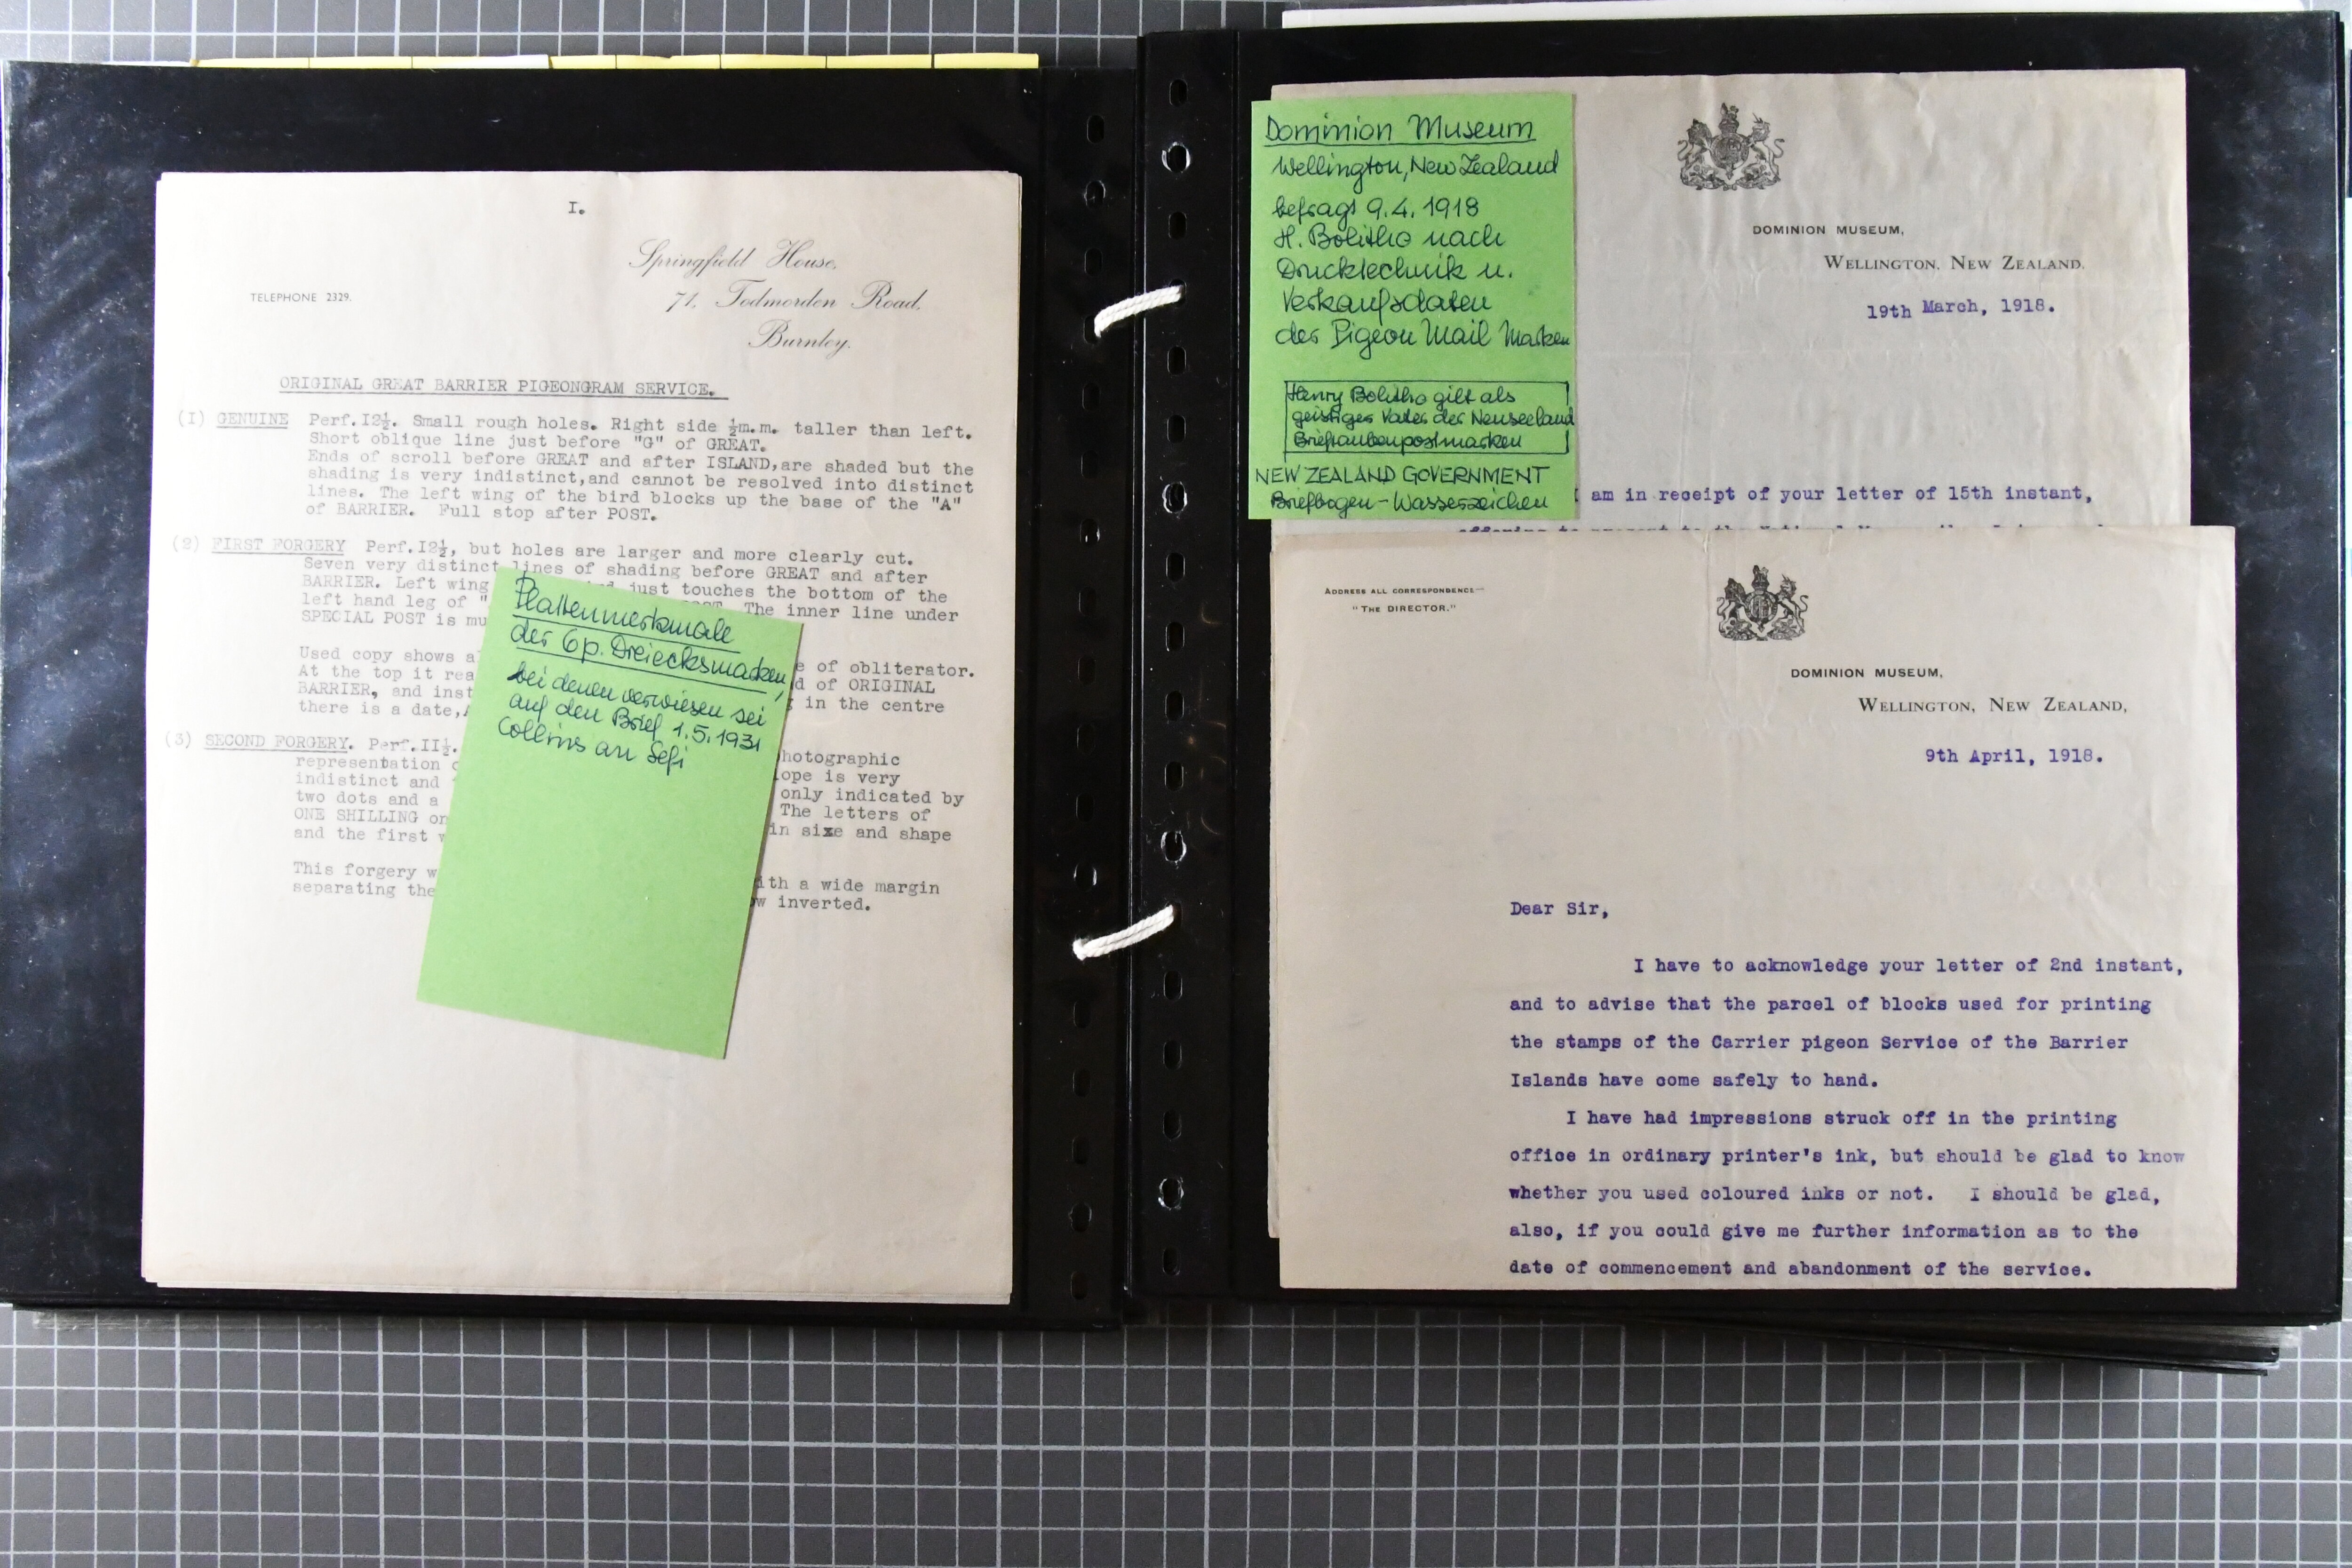 I.
Springfield House,
TELEPHONE 2329.
71, Todmorden Road,
Burnley.
ORIGINAL GREAT BARRIER PIGEONGRAM SERVICE.
(I) GENUINE Perf.I2½. Small rough holes. Right side ½m.m. taller than left.
Short oblique line just before "G" of GREAT.
Ends of scroll before GREAT and after ISLAND,are shaded but the
shading is very indistinct,and cannot be resolved into distinct
lines. The left wing of the bird blocks up the base of the "A"
of BARRIER. Full stop after POST.
(2) FIRST FORGERY Perf.I2½, but holes are larger and more clearly cut.
Seven very distinct lines of shading before GREAT and after
BARRIER. Left wing just touches the bottom of the
left hand leg of " The inner line under
SPECIAL POST is mu
Used copy shows a e of obliterator.
At the top it rea d of ORIGINAL
BARRIER, and inst in the centre
there is a date,
(3) SECOND FORGERY. Perf.II½. hotographic
representation ope is very
indistinct and only indicated by
two dots and a The letters of
ONE SHILLING on in sixe and shape
and the first w
This forgery w ith a wide margin
separating the ow inverted.
Plattenmerkmale
der 6p. Dreiecksmarken,
bei denen verwiesen sei
auf den Brief 1.5.1931
Collins an Sefi
Dominion Museum
Wellington, New Zealand
befragt 9.4.1918
H. Bolitho nach
Drucktechnik u.
Verkaufsdaten
der Pigeon Mail Marken
Henry Bolitho gilt als
geistiger Vater der Neuseeland
Brieftaubenpostmarken
NEW ZEALAND GOVERNMENT
Briefbogen-Wasserzeichen
DOMINION MUSEUM,
WELLINGTON, NEW ZEALAND.
19th March, 1918.
I am in receipt of your letter of 15th instant,
ADDRESS ALL CORRESPONDENCE—
"THE DIRECTOR."
DOMINION MUSEUM,
WELLINGTON, NEW ZEALAND,
9th April, 1918.
Dear Sir,
I have to acknowledge your letter of 2nd instant,
and to advise that the parcel of blocks used for printing
the stamps of the Carrier pigeon Service of the Barrier
Islands have come safely to hand.
I have had impressions struck off in the printing
office in ordinary printer's ink, but should be glad to know
whether you used coloured inks or not. I should be glad,
also, if you could give me further information as to the
date of commencement and abandonment of the service.